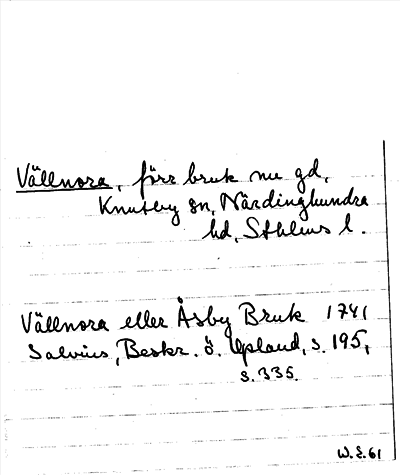 Vällnora, förr bruk nu gd,
Knutby sn, Närdinghundra
hd, Sthlms l.
Vällnora eller Åsby Bruk 1741
Salvius, Beskr. ö. Upland, s. 195,
s. 335.
W.E.61